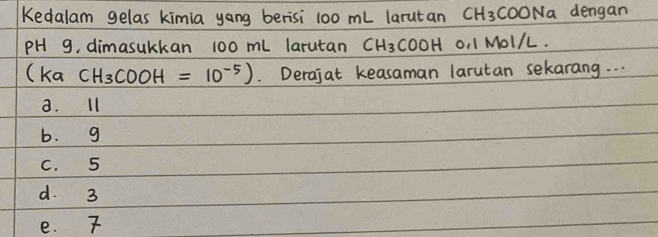 Kedalam gelas kimia yang berisi 100 mL larutan CH3COONa dengan
pH 9, dimasukkan 100 mL larutan CH3COOH 0,1 Mol/L.
(Ka CH3COOH = 10⁻⁵). Derajat keasaman larutan sekarang...
a. 11
b. 9
c. 5
d. 3
e. 7